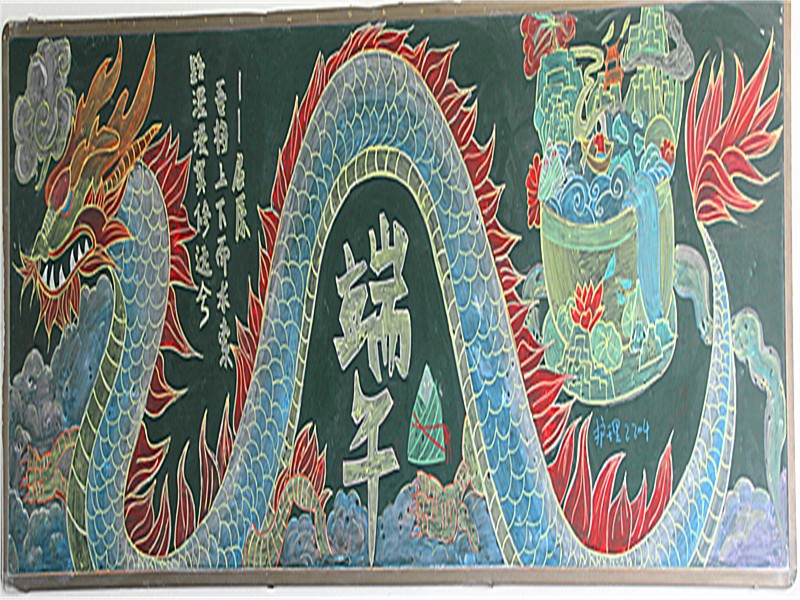 路漫漫其修远兮
吾将上下而求索
——屈原
端午
护理2204